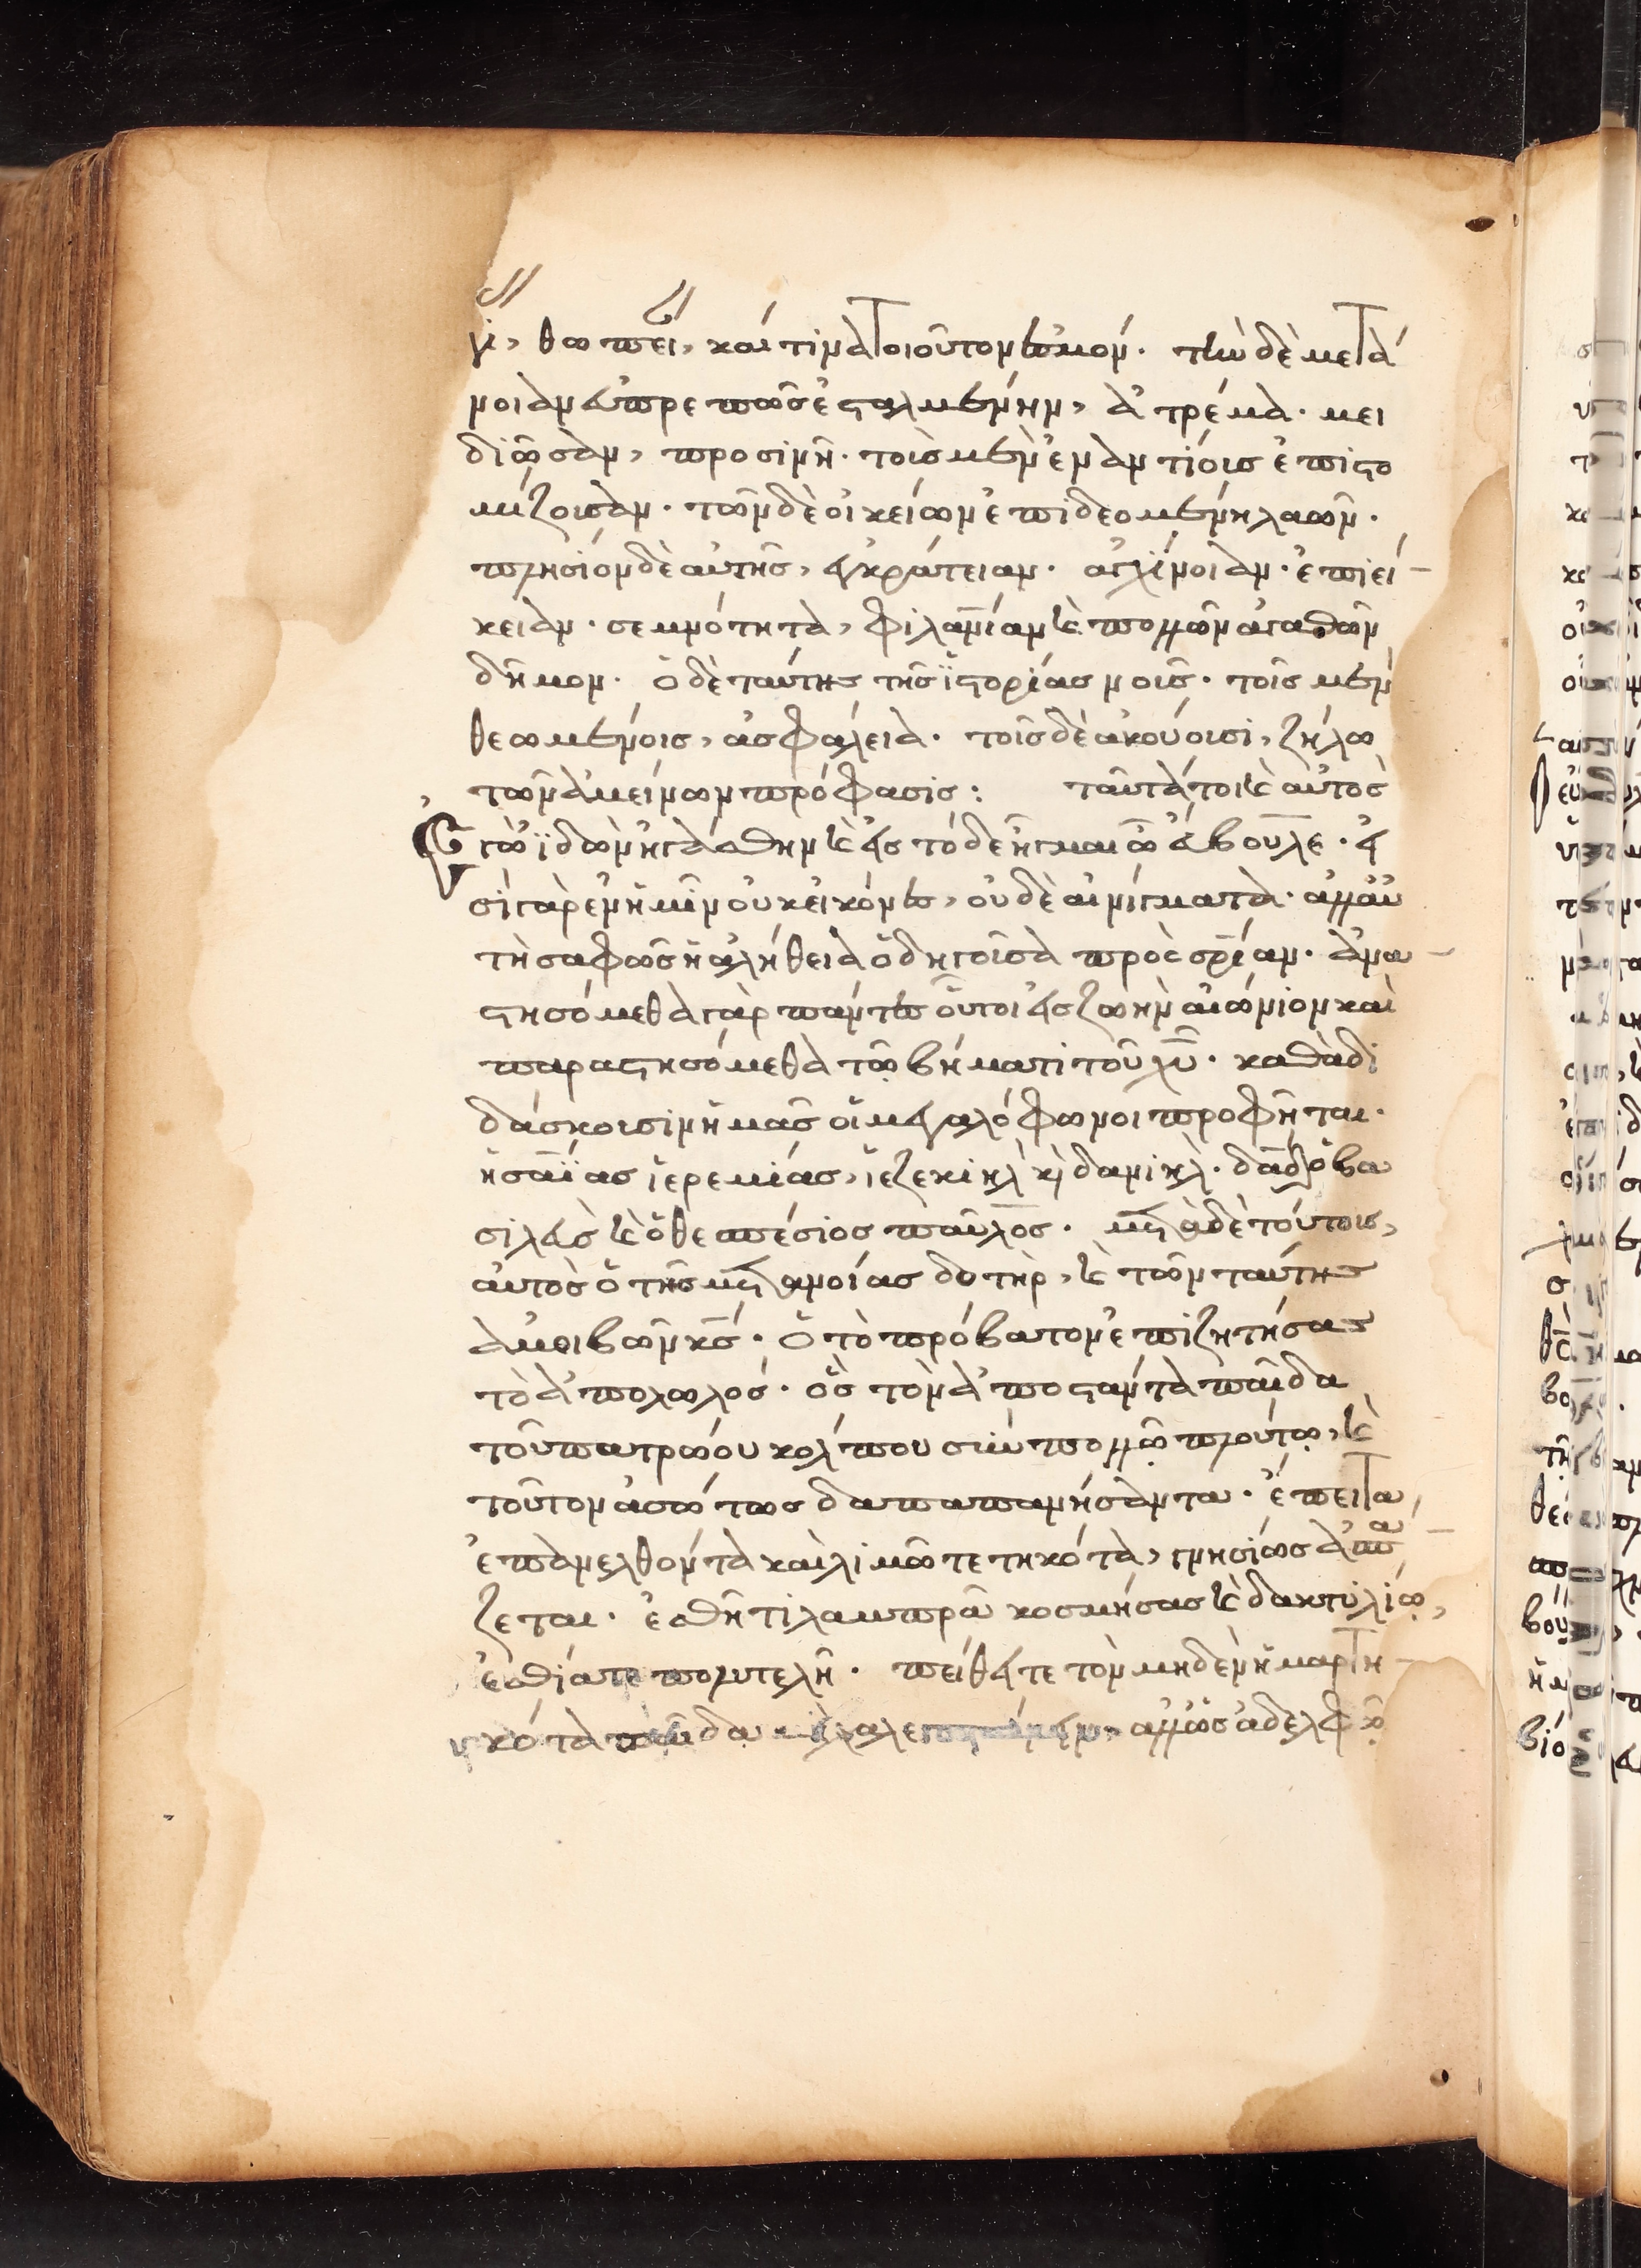 νί, θωπεῖ, καί τινὰ τοιοῦτον ἑσμόν. τὴν δὲ μετά
νοιαν εὐπρεπῶς ἐσταλμένην, ἀτρέμα. μει
διῶσαν, προσινῆ. τοῖς μὲν ἐναντίοις ἐπιστο
μίζουσαν. τῶν δὲ οἰκείων ἐπιδεομένη λαῶν.
πλησίον δὲ αὐτῆς, ἐγκράτειαν. ἀγχίνοιαν. ἐπιεί
κειαν. σεμνότητα, φιλανίαν καὶ πολλῶν ἀγαθῶν
δῆμον. ὁ δὲ ταύτης τῆς ἱστορίας νοῦς. τοῖς μὲν
θεωμένοις, ἀσφάλεια. τοῖς δὲ ἀκούουσι, ζήλω
τῶν ἀμεινόνων πρόφασις: ταῦτά τοι καὶ αὐτὸς
ἐγὼ ἰδὼν ἠγάσθην καὶ εἰς τόδε ἧγμαι ὦ εὔβουλε. εἰ
σὶ γὰρ ἐν ἡμῖν οὐκ εἰκόνες, οὐδὲ αἰνίγματα. ἀλλ' αὐ
τὴ σαφῶς ἡ ἀλήθεια ὁδηγοῦσα πρὸς σρίαν. ἀνα
στησόμεθα γὰρ πάντες οὗτοι εἰς ζωὴν αἰώνιον καὶ
παραστησόμεθα τῷ βήματι τοῦ χυ. καθὰ δι
δάσκουσιν ἡμᾶς οἱ μεγαλόφωνοι προφῆται.
ἡσαΐας ἱερεμίας, ἰεζεκιὴλ καὶ δανιήλ. δαδ ὁ βα
σιλεὺς καὶ ὁ θεσπέσιος παῦλος. μετὰ δὲ τούτοις,
αὐτὸς ὁ τῆς μετανοίας δοτὴρ, καὶ τῶν ταύτης
ἀμοιβῶν κς. ὁ τὸ πρόβατον ἐπιζητήσας
τὸ ἀπολωλός. ὃς τὸν ἀποστάντα παῖδα
τοῦ πατρώου κόλπου σὺν πολλῷ πλούτῳ, καὶ
τοῦτον ἀσώτως δαπαπανήσαντα. ἔπειτα
ἐπανελθόντα καὶ λιμῷ τετηκότα, γνησίως ἀσπά
ζεται. ἐσθῆτι λαμπρᾷ κοσμήσας καὶ δακτυλίῳ,
ἑστιάτε πολυτελῆ. πείθει τε τὸν μηδὲν ἡμαρτη
κότα παῖδα ἀλλ' ὡς ἀδελφῷ